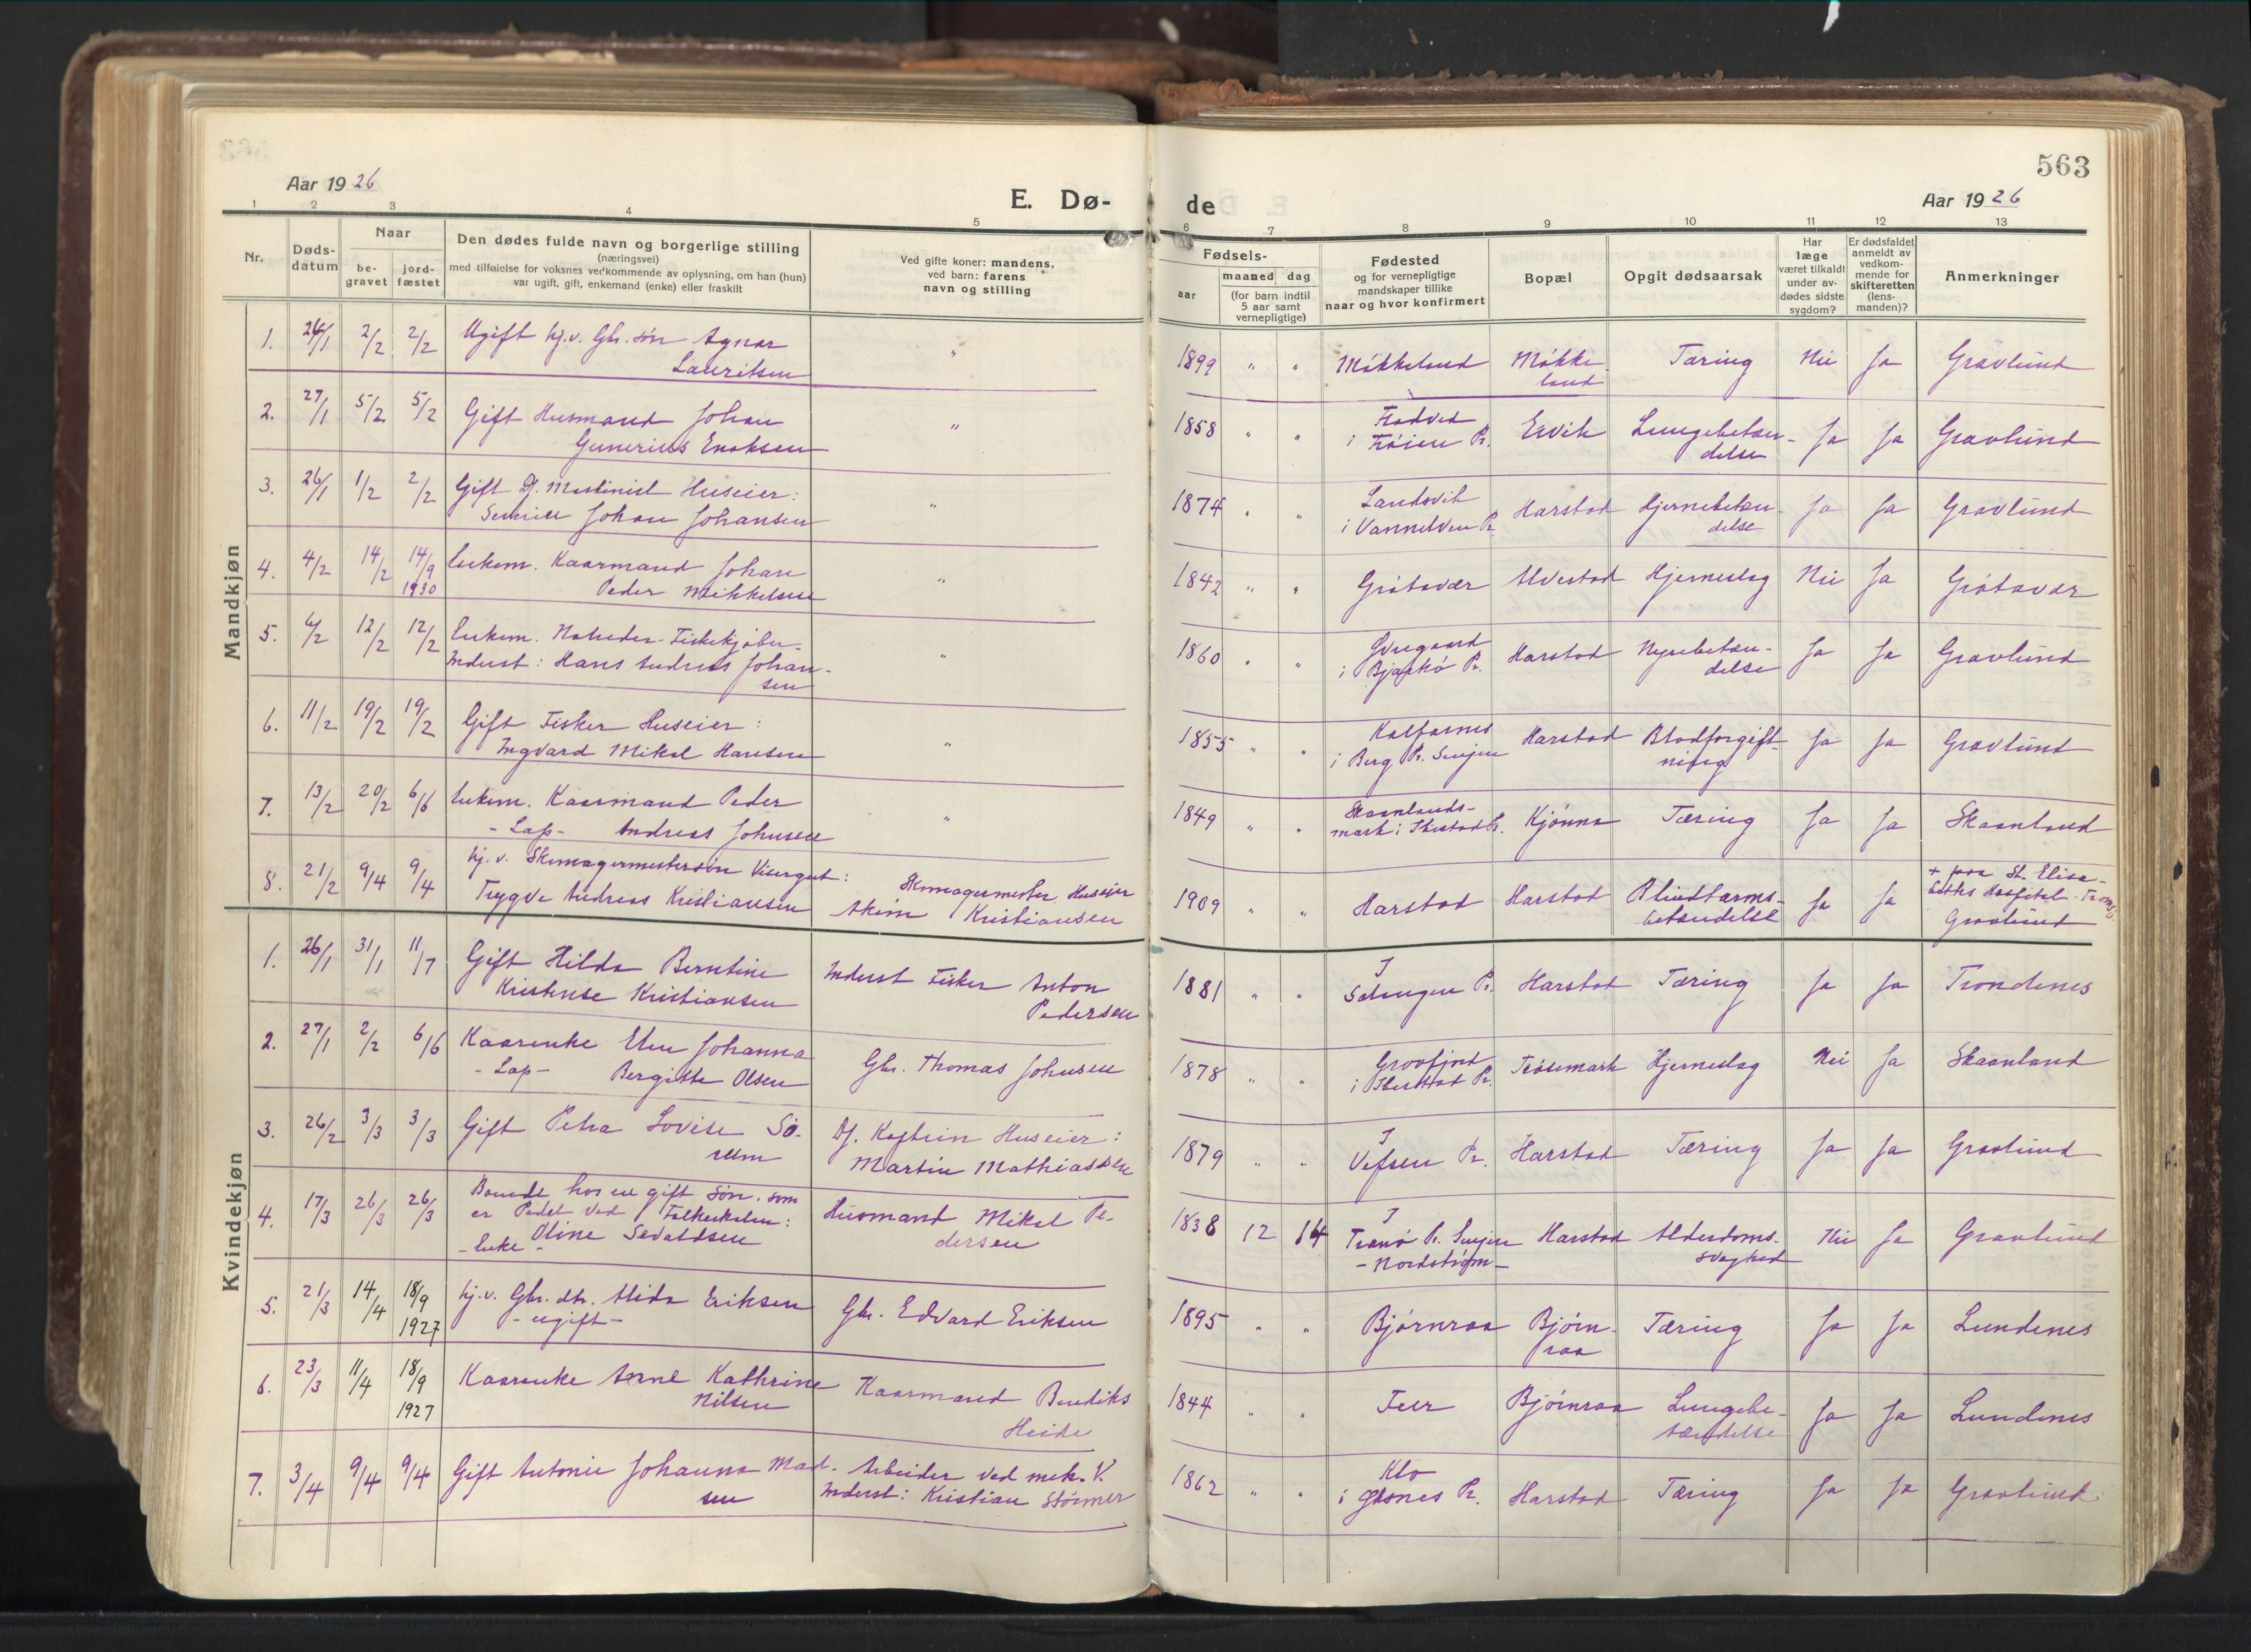 563
Aar 1926
E. Dø-
de
Aar 1926
1 2 3 4 5 6 7 8 9 10 11 12 13
Nr.
Døds-
datum
Naar
be-
gravet
jord-
fæstet
Den dødes fulde navn og borgerlige stilling
(næringsvei)
med tilføielse for voksnes vedkommende av oplysning, om han (hun)
var ugift, gift, enkemand (enke) eller fraskilt
Ved gifte koner: mandens,
ved barn: farens
navn og stilling
Fødsels-
aar
maaned dag
(for barn indtil
5 aar samt
vernepligtige)
Fødested
og for vernepligtige
mandskaper tillike
naar og hvor konfirmert
Bopæl
Opgit dødsaarsak
Har
læge
været tilkaldt
under av-
dødes sidste
sygdom?
Er dødsfaldet
anmeldt av
vedkom-
mende for
skifteretten
(lens-
manden)?
Anmerkninger
Mandkjøn
1. 26/1 2/2 2/2 Ugift hj.v. Gbr. søn Agnar
Lauritsen " 1899 " " Møkkeland Møkke-
land Tæring Nei Ja Gravlund
2. 27/1 5/2 5/2 Gift Husmand Johan
Gunerius Enoksen " 1858 " "
i Trøien Pr. Ervik Lungebetæn-
delse Ja Ja Gravlund
3. 26/1 1/2 2/2 Gift Df. Maskinist Huseier:
Johan Johansen " 1874 " " Landsvik
i Vannelven Pr. Harstad Hjernebetæn-
delse Ja Ja Gravlund
4. 4/2 14/2 14/9
1930 Enkem. Kaarmand Johan
Peder Mikkelsen " 1842 " " Grøtavær Alvestad Hjerneslag Nei Ja Grøtavær
5. 6/2 12/2 12/2 Enkem. Fiskekjøber-
Inderst: Hans Andreas Johan-
sen " 1860 " "
i Bjarkø Pr. Harstad Nyrebetæn-
delse Ja Ja Gravlund
6. 11/2 19/2 19/2 Gift Fisker Huseier:
Ingvard Mikal Hansen " 1855 " " Kalfarnes
i Berg Pr. Senjen Harstad Blodforgift-
ning Ja Ja Gravlund
7. 13/2 20/2 6/6 Enkem. Kaarmand Peder
- Lap - Andreas Johnsen " 1849 " " Skaanlands-
mark i Ibestad Pr. Kjønna Tæring Ja Ja Skaanland
8. 21/2 9/4 9/4 hj.v. Skomagermestersøn Visergut:
Trygve Andreas Kristiansen
Skomagermester Huseier
Akim Kristiansen 1909 " " Harstad Harstad Blindtarms-
betændelse Ja Ja + paa St. Elisa-
beths Hospital - Tromsø
Gravlund
Kvindekjøn
1. 26/1 31/1 11/7 Gift Hilda Berntine
Kristense Kristiansen
Inderst Fisker Anton
Pedersen 1881 " " I
Salangen Pr. Harstad Tæring Ja Ja Trondenes
2. 27/1 2/2 6/6 Kaarenke Elen Johanna
- Lap - Bergitte Olsen Gbr. Thomas Johnsen 1878 " " Grovfjord
i Ibestad Pr. Trøsemark Hjerneslag Nei Ja Skaanland
3. 26/2 3/3 3/3 Gift Petra Lovise Sø-
rum Df. Kaptein Huseier:
Martin Mathiassen 1879 " " I
Vefsen Pr. Harstad Tæring Ja Ja Gravlund
4. 17/3 26/3 26/3 Boende hos en gift søn, som
er Pedel ved Folkeskolen:
- Enke - Oline Sevaldsen
Husmand Mikal Pe-
dersen 1838 12 14 I
Tranø Pr. Senjen
- Nordstrøm - Harstad Alderdoms-
svaghed Nei Ja Gravlund
5. 21/3 14/4 18/9
1927 hj.v. Gbr. dtr. Alida Eriksen
- ugift - Gbr. Edvard Eriksen 1895 " " Bjørnraa Bjørn-
raa Tæring Ja Ja Lundenes
6. 23/3 11/4 18/9
1927 Kaarenke Anne Kathrine
Nilsen Kaarmand Bendiks
Heide 1844 " " Bjørnraa Lungebe-
tændelse Ja Ja Lundenes
7. 3/4 9/4 9/4 Gift Antonie Johanna Mad-
sen Arbeider ved mek. V.
Inderst: Kristian Størmer 1862 " " Klo
i Øksnes Pr. Harstad Tæring Ja Ja Gravlund